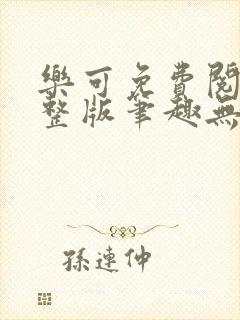 樂可免費閱
整版筆趣無
孫連仲